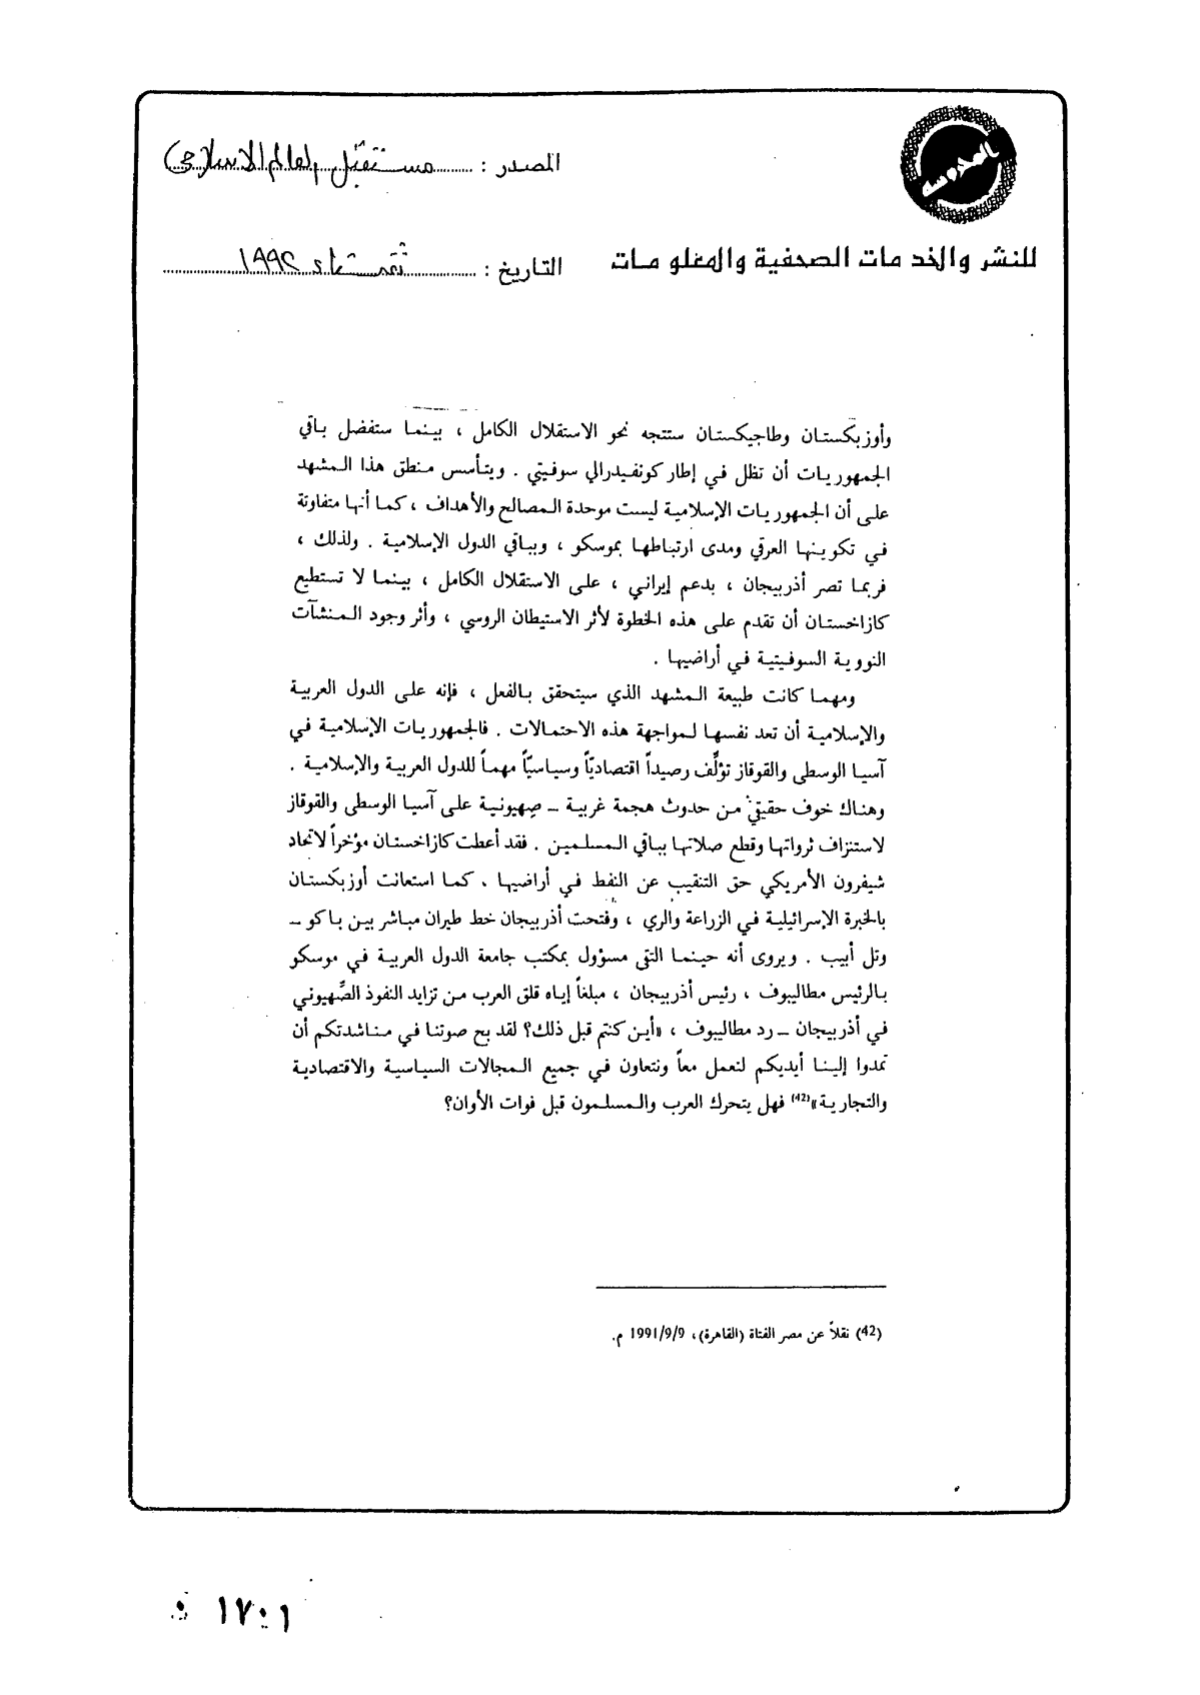 المحروسة
المصدر : مستقبل العالم الاسلامى
للنشر والخدمات الصحفية والمعلومات
التاريخ : شتاء ١٩٩٢
وأوزبكستان وطاجيكستان ستتجه نحو الاستقلال الكامل ، بينما ستفضل باقي
الجمهوريات أن تظل في إطار كونفيدرالي سوفيتي . ويتأسس منطق هذا المشهد
على أن الجمهوريات الإسلامية ليست موحدة المصالح والأهداف ، كما أنها متفاوتة
في تكوينها العرقي ومدى ارتباطها بموسكو ، وبباقي الدول الإسلامية . ولذلك ،
فربما تصر أذربيجان ، بدعم إيراني ، على الاستقلال الكامل ، بينما لا تستطيع
كازاخستان أن تقدم على هذه الخطوة لأثر الاستيطان الروسي ، وأثر وجود المنشآت
النووية السوفيتية في أراضيها .
ومهما كانت طبيعة المشهد الذي سيتحقق بالفعل ، فإنه على الدول العربية
والإسلامية أن تعد نفسها لمواجهة هذه الاحتمالات . فالجمهوريات الإسلامية في
آسيا الوسطى والقوقاز تؤلِّف رصيداً اقتصاديّاً وسياسيّاً مهماً للدول العربية والإسلامية .
وهناك خوف حقيقي من حدوث هجمة غربية – صهيونية على آسيا الوسطى والقوقاز
لاستنزاف ثرواتها وقطع صلاتها بباقي المسلمين . فقد أعطت كازاخستان مؤخراً لاتحاد
شيفرون الأمريكي حق التنقيب عن النفط في أراضيها . كما استعانت أوزبكستان
بالخبرة الإسرائيلية في الزراعة والري ، وفتحت أذربيجان خط طيران مباشر بين باكو –
وتل أبيب . ويروى أنه حينما التقى مسؤول بمكتب جامعة الدول العربية في موسكو
بالرئيس مطاليبوف ، رئيس أذربيجان ، مبلغاً إياه قلق العرب من تزايد النفوذ الصِّهيوني
في أذربيجان – رد مطاليبوف ، «أين كنتم قبل ذلك؟ لقد بح صوتنا في مناشدتكم أن
تمدوا إلينا أيديكم لنعمل معاً ونتعاون في جميع المجالات السياسية والاقتصادية
والتجارية»(42) فهل يتحرك العرب والمسلمون قبل فوات الأوان؟
(42) نقلاً عن مصر الفتاة (القاهرة)، 1991/9/9 م.
١٧٠٦